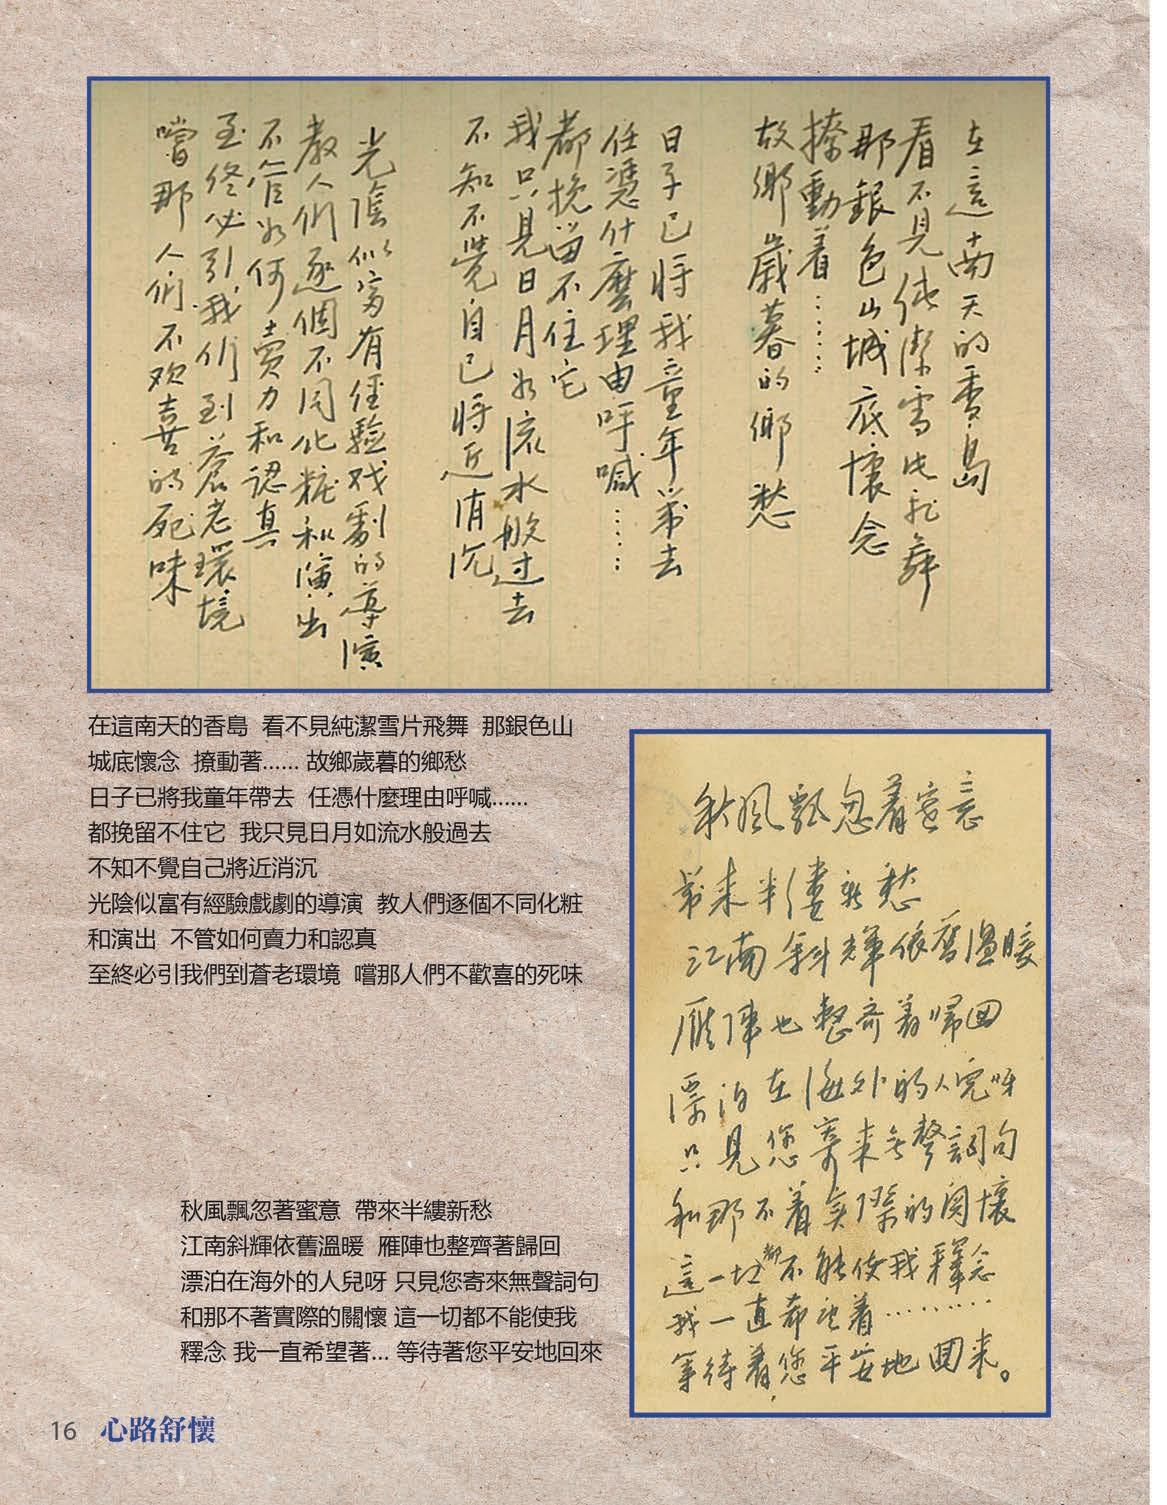 在這南天的香島
看不見純潔雪片飛舞
那銀色山城底懷念
撩動着……
故鄉歲暮的鄉愁
日子已將我童年帶去
任憑什麼理由呼喊……
都挽留不住它
我只見日月如流水般过去
不知不覺自己將近消沉
光陰似富有經驗戏劇的導演
教人們逐個不同化粧和演出
不管如何賣力和認真
至終必引我们到蒼老環境
嚐那人們不欢喜的死味
在這南天的香島 看不見純潔雪片飛舞 那銀色山
城底懷念 撩動著...... 故鄉歲暮的鄉愁
日子已將我童年帶去 任憑什麼理由呼喊......
都挽留不住它 我只見日月如流水般過去
不知不覺自己將近消沉
光陰似富有經驗戲劇的導演 教人們逐個不同化粧
和演出 不管如何賣力和認真
至終必引我們到蒼老環境 嚐那人們不歡喜的死味
秋風飄忽着蜜意
帶来半縷新愁
江南斜輝依舊溫暖
雁陣也整齊着歸回
漂泊在海外的人兒呀
只見您寄来無聲詞句
和那不着實際的関懷
這一切都不能使我釋念
我一直希望着………
等待着您平安地回来。
秋風飄忽著蜜意 帶來半縷新愁
江南斜輝依舊溫暖 雁陣也整齊著歸回
漂泊在海外的人兒呀 只見您寄來無聲詞句
和那不著實際的關懷 這一切都不能使我
釋念 我一直希望著... 等待著您平安地回來
16 心路舒懷